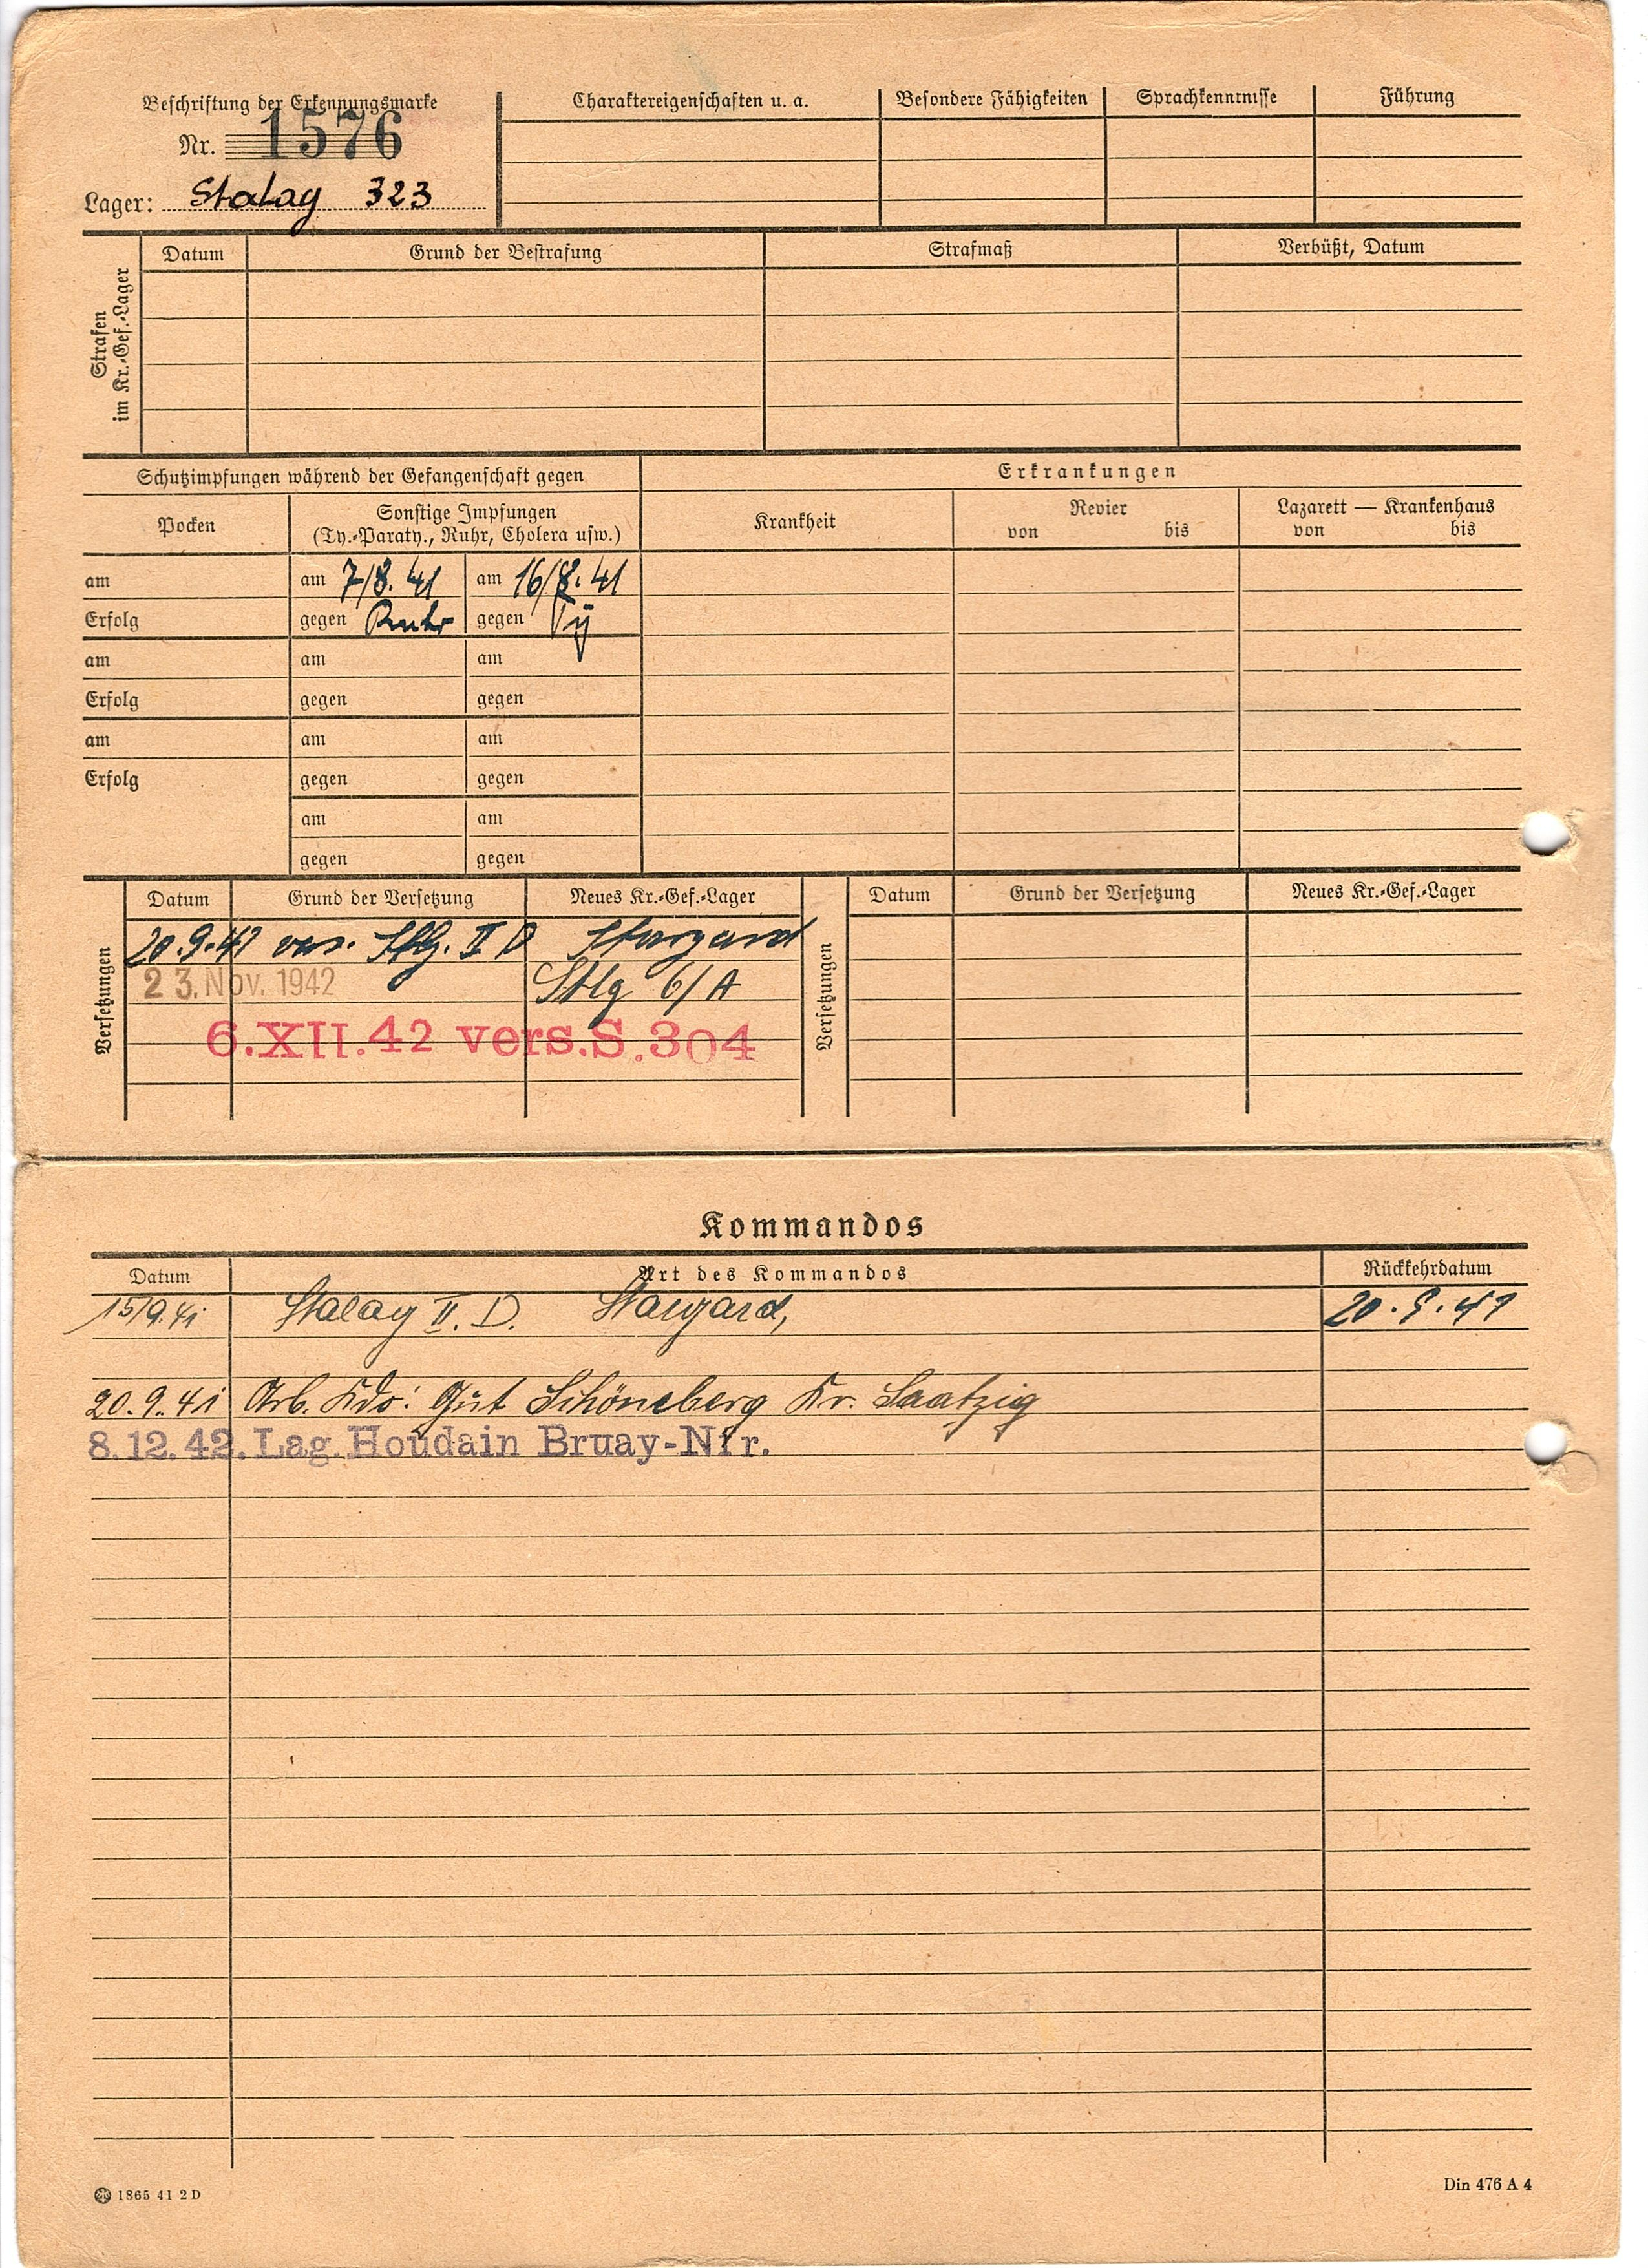 Beschriftung der Erkennungsmarke
Nr. 1576
Lager: Stalag 323
Charaktereigenschaften u. a. Besondere Fähigkeiten Sprachkenntnisse Führung
Strafen
im Kr.-Gef.-Lager
Datum Grund der Bestrafung Strafmaß Verbüßt, Datum
Schutzimpfungen während der Gefangenschaft gegen
Erkrankungen
Pocken
Sonstige Impfungen
(Ty.-Paraty., Ruhr, Cholera usw.)
Krankheit
Revier
von bis
Lazarett — Krankenhaus
von bis
am am 7/8. 41 am 16/8. 41
Erfolg gegen Ruhr gegen Ty
am am am
Erfolg gegen gegen
am am am
Erfolg gegen gegen
am am
gegen gegen
Versetzungen
Datum Grund der Versetzung Neues Kr.-Gef.-Lager
20.9.41 vers. Stlg. II D Stargard
23. Nov. 1942 Stlg 6/A
6.XII.42 vers.S.304
Versetzungen
Datum Grund der Versetzung Neues Kr.-Gef.-Lager
Kommandos
Datum Art des Kommandos Rückkehrdatum
15/9.41 Stalag II. D. Stargard, 20.9.41
20.9.41 Arb. Kdo: Gut Schöneberg Kr. Saatzig
8.12.42. Lag. Houdain Bruay-Nfr.
1865 41 2 D
Din 476 A 4